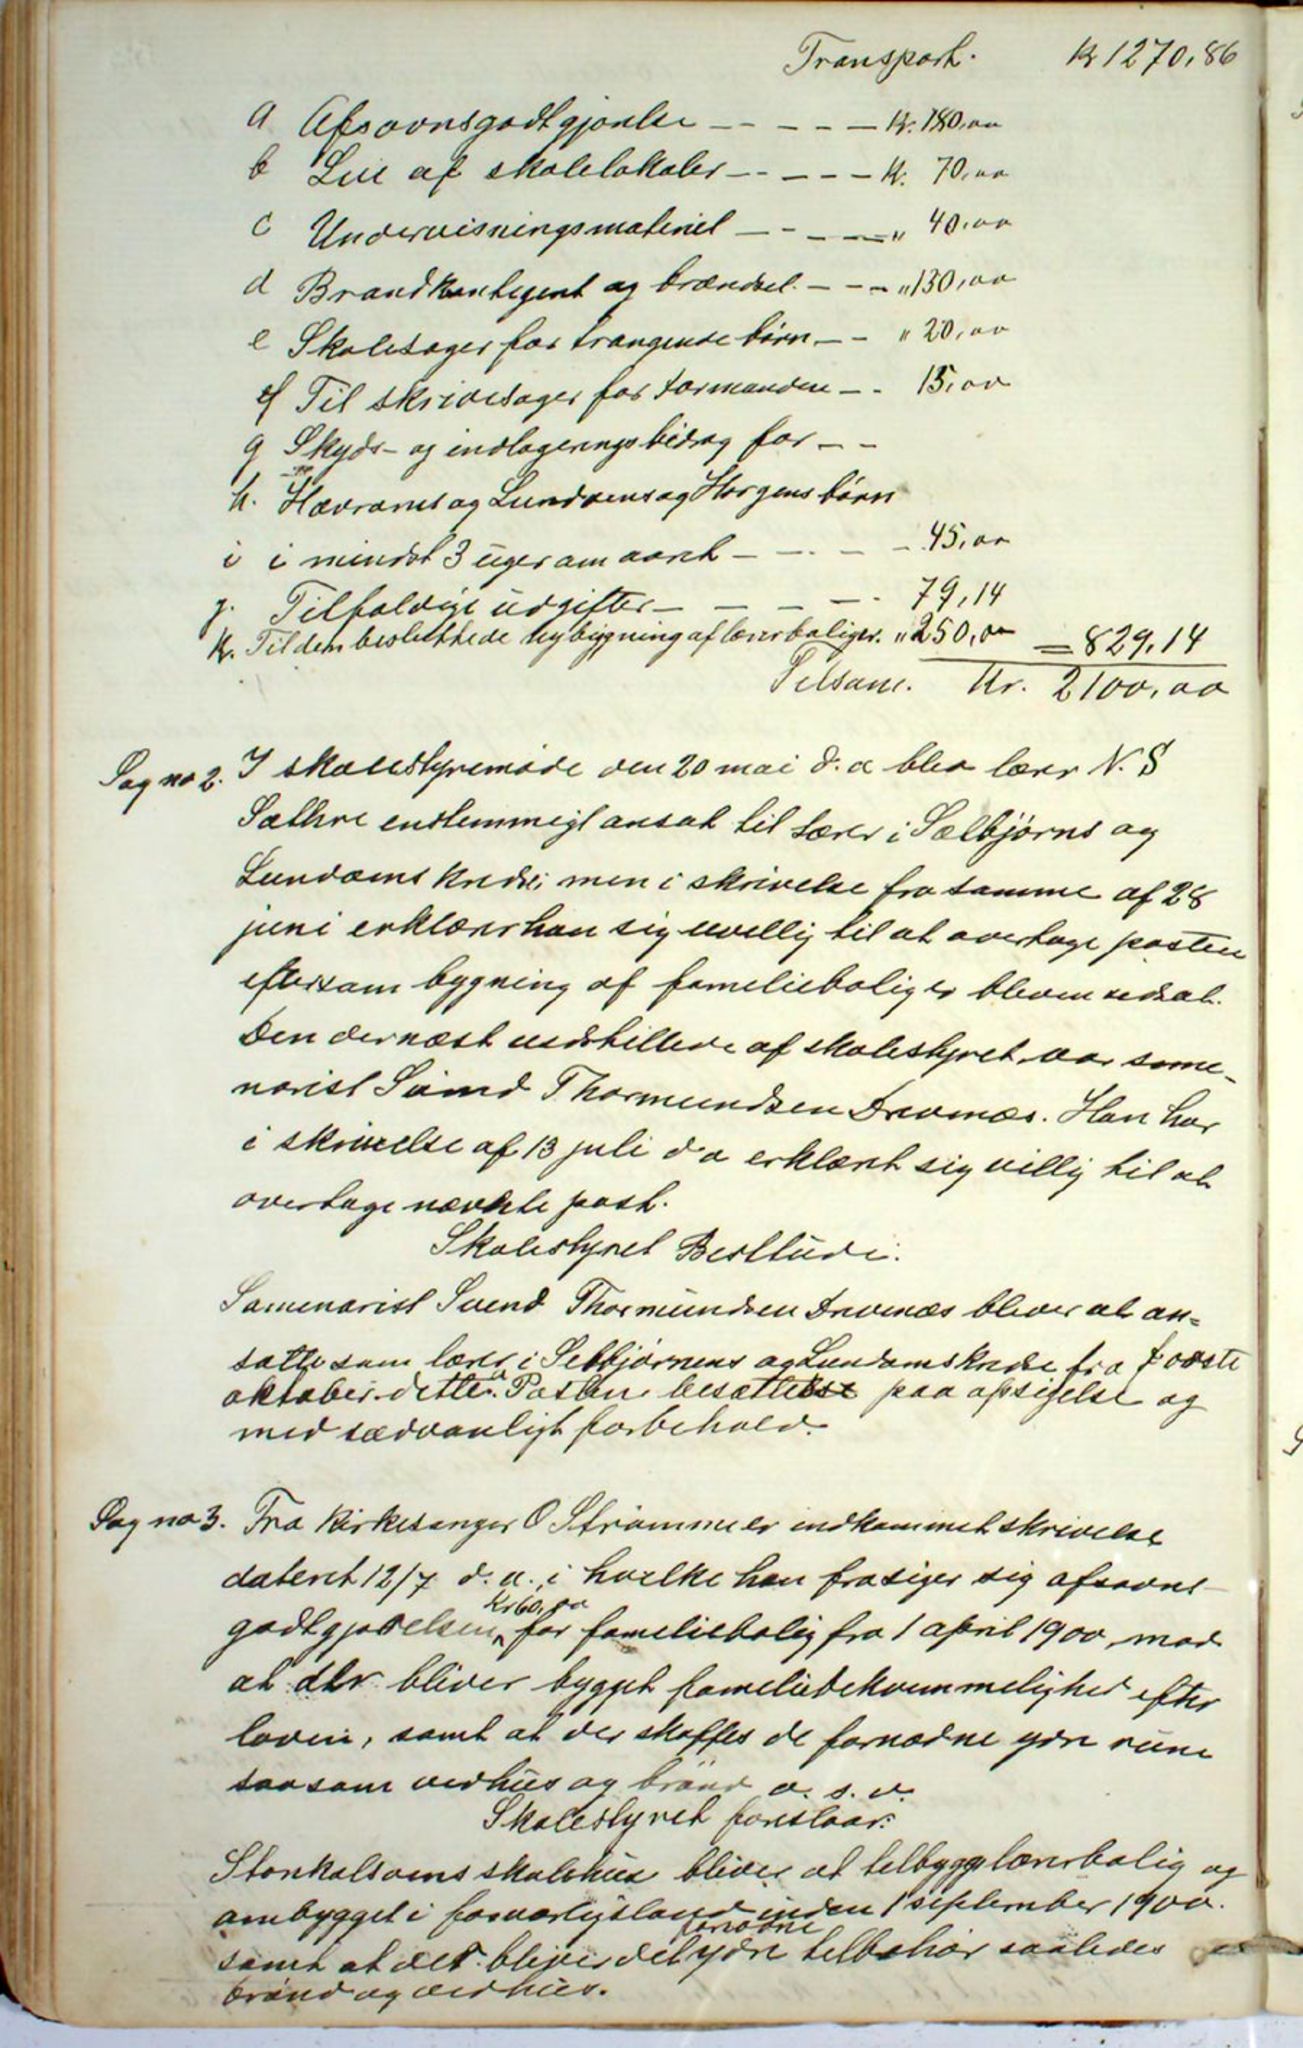 Transport. Kr 1270,86
a Afsavnsgodtgjörelse — — — — — Kr. 180,00
b Leie af skolelokaler — — — — — Kr. 70,00
c Undervisningsmateriel — — — — — „ 40,00
d Brandkontegent og brændsel. — — — „ 130,00
e Skolesager for trængende börn — — „ 20,00
f Til skrivesager for formanden — — 15,00
g Skyds- og indlogeringsbidrag for — —
h. Hævrøens og Lundøens og Horgens börn
i i mindst 3 uger om aaret — — — — 45,00
j. Tilfældige udgifter — — — — — 79,14
k. Til den besluttede nybygning af lærerboliger. „ 250,00 = 829,14
Tilsam. Kr. 2100,00
Sag no 2. I skolestyremöde den 20 mai d. a blev lærer N. S
Sæthre enstemmigt ansat til lærer i Selbjörns og
Lundøens kreds; men i skrivelse fra samme af 28
juni erklærer han sig uvillig til at overtage posten
eftersom bygning af familieboliger bleven udsat.
Den dernæst indstillede af skolestyret var seme-
narist Svend Thormundsen Drevnæs. Han har
i skrivelse af 13 juli d a erklæret sig villig til at
overtage nævnte post.
Skolestyret Besluttede:
Semenarist Svend Thormundsen Drevnæs bliver at an-
sætte som lærer i Selbjörnens og Lundøens kredse fra förste
oktober dette a. Posten besættes paa opsigelse og
med sædvanligt forbehold.
Sag no 3. Fra Kirkesanger O Strömme er indkommet skrivelse
dateret 12/7 d. a. i hvilke han frasiger sig afsavns-
Kr 60,00
godtgjörelsen for familiebolig fra 1 april 1900, mod
at der bliver bygget familiebekvemmelighed efter
loven, samt at der skaffes de fornødne ydre rum
saasom vedhus og brönd o. s. v.
Skolestyret foreslaar:
Storekalsøens skolehus bliver at tilbygge lærerbolig og
ombygget i forsvarligstand inden 1 september 1900.
fornødne
samt at det bliver det ydre tilbehör saaledes
brönd og vedhus.